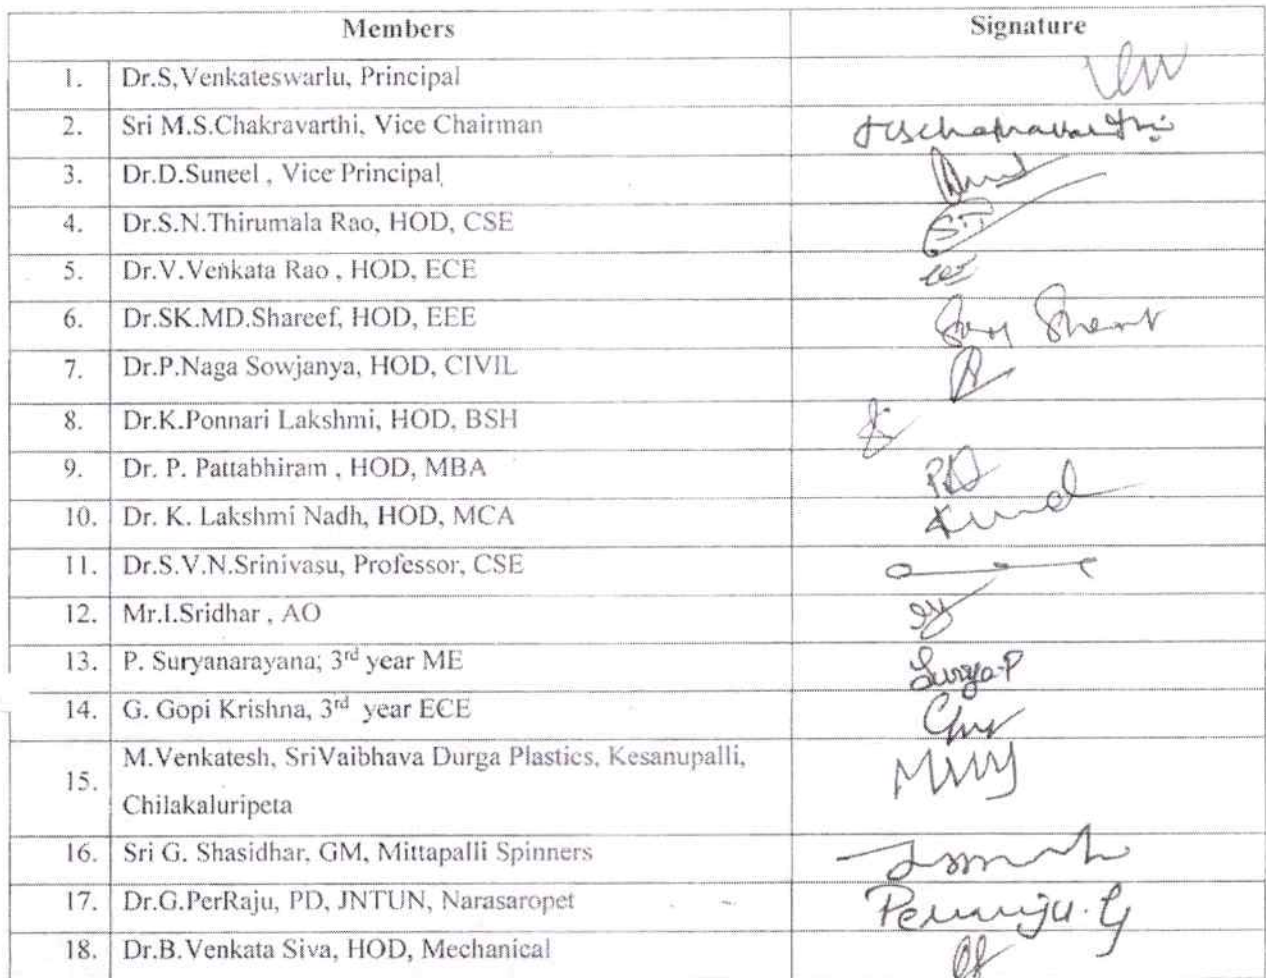 Members Signature
1. Dr.S,Venkateswarlu, Principal
2. Sri M.S.Chakravarthi, Vice Chairman
3. Dr.D.Suneel , Vice Principal
4. Dr.S.N.Thirumala Rao, HOD, CSE
5. Dr.V.Venkata Rao , HOD, ECE
6. Dr.SK.MD.Shareef, HOD, EEE
7. Dr.P.Naga Sowjanya, HOD, CIVIL
8. Dr.K.Ponnari Lakshmi, HOD, BSH
9. Dr. P. Pattabhiram , HOD, MBA
10. Dr. K. Lakshmi Nadh, HOD, MCA
11. Dr.S.V.N.Srinivasu, Professor, CSE
12. Mr.I.Sridhar , AO
13. P. Suryanarayana; 3rd year ME Surya.P
14. G. Gopi Krishna, 3rd year ECE
15. M.Venkatesh, SriVaibhava Durga Plastics, Kesanupalli,
Chilakaluripeta
16. Sri G. Shasidhar, GM, Mittapalli Spinners
17. Dr.G.PerRaju, PD, JNTUN, Narasaropet
18. Dr.B.Venkata Siva, HOD, Mechanical